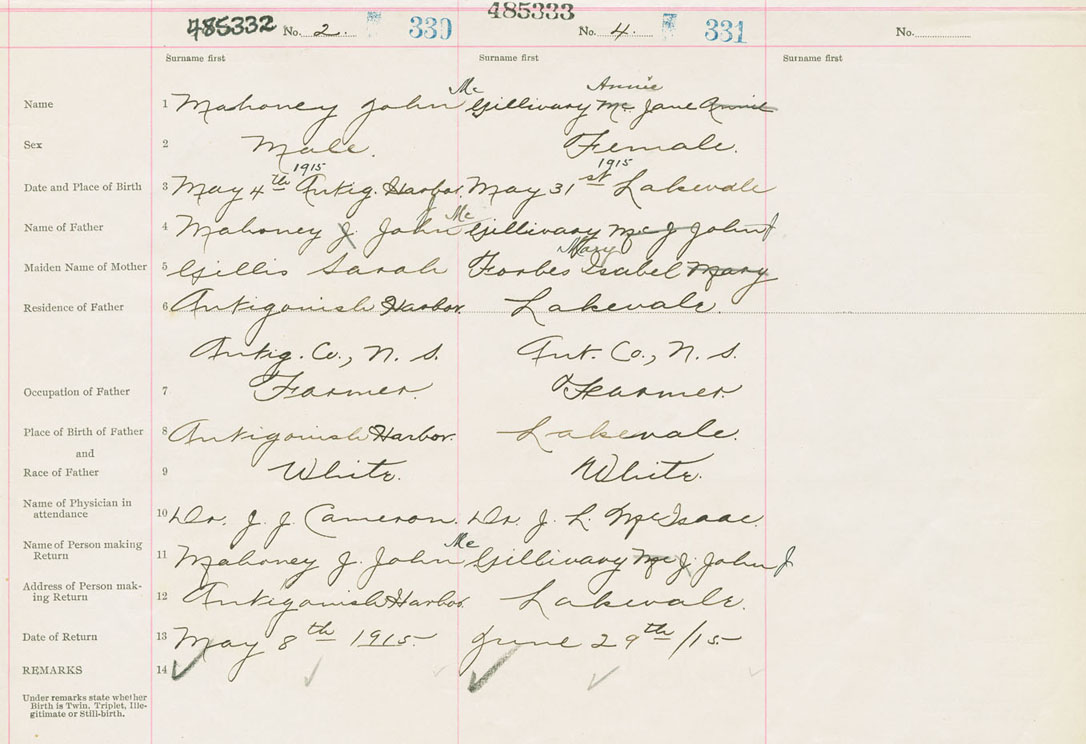 485332 No. 2. 330 485333 No. 4. 331 No.
Surname first Surname first Surname first
Name 1 Mahoney John McGillivary Mc Jane Annie Annie
Sex 2 Male. Female.
Date and Place of Birth 3 May 4th 1915 Antig. Harbor. May 31st 1915 Lakevale
Name of Father 4 Mahoney J. John McGillivary Mc J John J
Maiden Name of Mother 5 Gillis Sarah Forbes Mary Isabel Mary
Residence of Father 6 Antigonish Harbor. Lakevale.
Antig. Co., N. S. Ant. Co., N. S.
Occupation of Father 7 Farmer. Farmer.
Place of Birth of Father 8 Antigonish Harbor. Lakevale.
and
Race of Father 9 White. White.
Name of Physician in
attendance 10 Dr. J. J. Cameron. Dr. J. L. McIsaac.
Name of Person making
Return 11 Mahoney J. John McGillivary Mc J. John J
Address of Person mak-
ing Return 12 Antigonish Harbor. Lakevale.
Date of Return 13 May 8th 1915 June 29th /15
REMARKS 14
Under remarks state whether
Birth is Twin, Triplet, Ille-
gitimate or Still-birth.